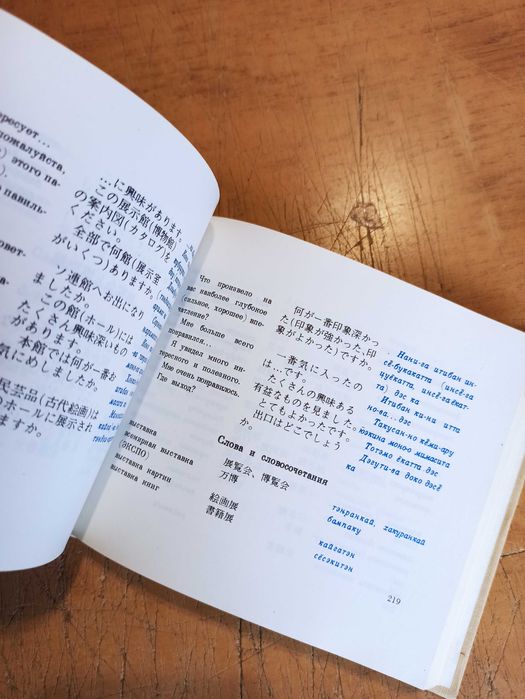 ересует...
ожалуйста,
) этого па-
павиль-
овет-
...に興味があります。
この展示館(博物館)
の案内図(カタログ)を
ください。
全部で何館(展示室
がいくつ)ありますか。
ソ連館へお出になり
ましたか。
この館(ホール)には
たくさん興味深いもの
があります。
本館では何が一番お
気にめしましたか。
民芸品(古代絵画)は
のホールに展示され
ますか。
Что произвело на
вас наиболее глубокое
(сильное, хорошее) впе-
чатление?
Мне больше всего
понравилось...
Я увидел много ин-
тересного и полезного.
Мне очень понравилось.
Где выход?
何が一番印象深かっ
た(印象が強かった,印
象がよかった)ですか。
一番気に入ったの
は...です。
たくさんの興味ある
有益なものを見ました。
とてもよかったです。
出口はどこでしょう
か。
Нани-га итибан ин-
сё-букакатта (инсё-га
цуёкатта, инсё-гаёкат-
та) дэс ка
Итибан ки-ни итта
но-ва...дэс
Такусан-но кёми-ару
юэкина моноо мимасита
Тотэмо ёкатта дэс
Дэгути-ва доко дэсё
ка
Слова и словосочетания
выставка
всемирная выставка
(ЭКСПО)
выставка картин
выставка книг
展覧会、博覧会
万博
絵画展
書籍展
тэнранкай, хакуранкай
бампаку
кайгатэн
сёсэкитэн
219